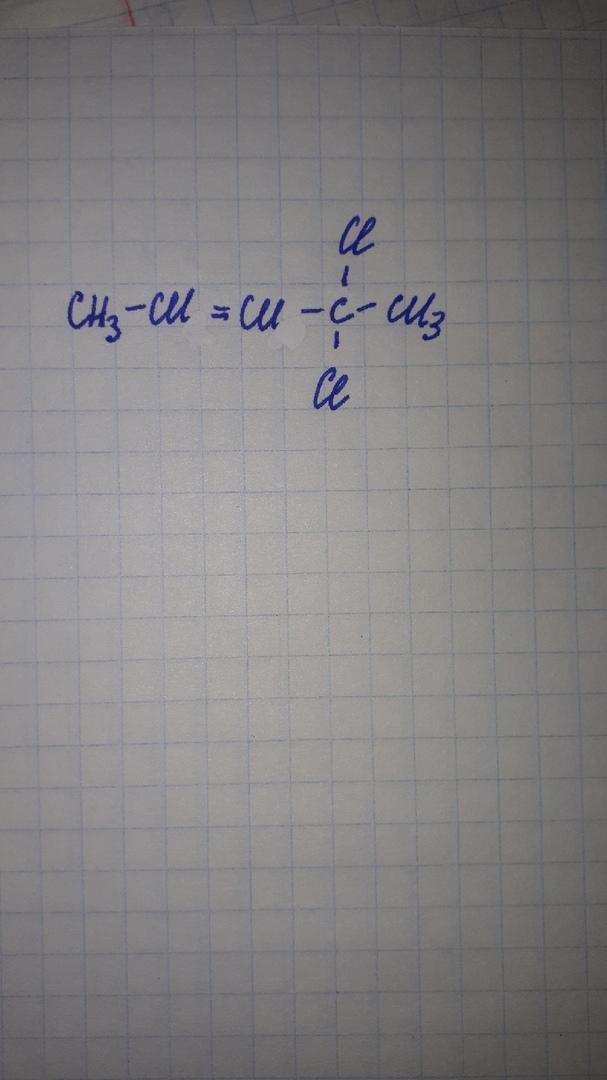 Cl
CH₃-CH=CH-C-CH₃
Cl